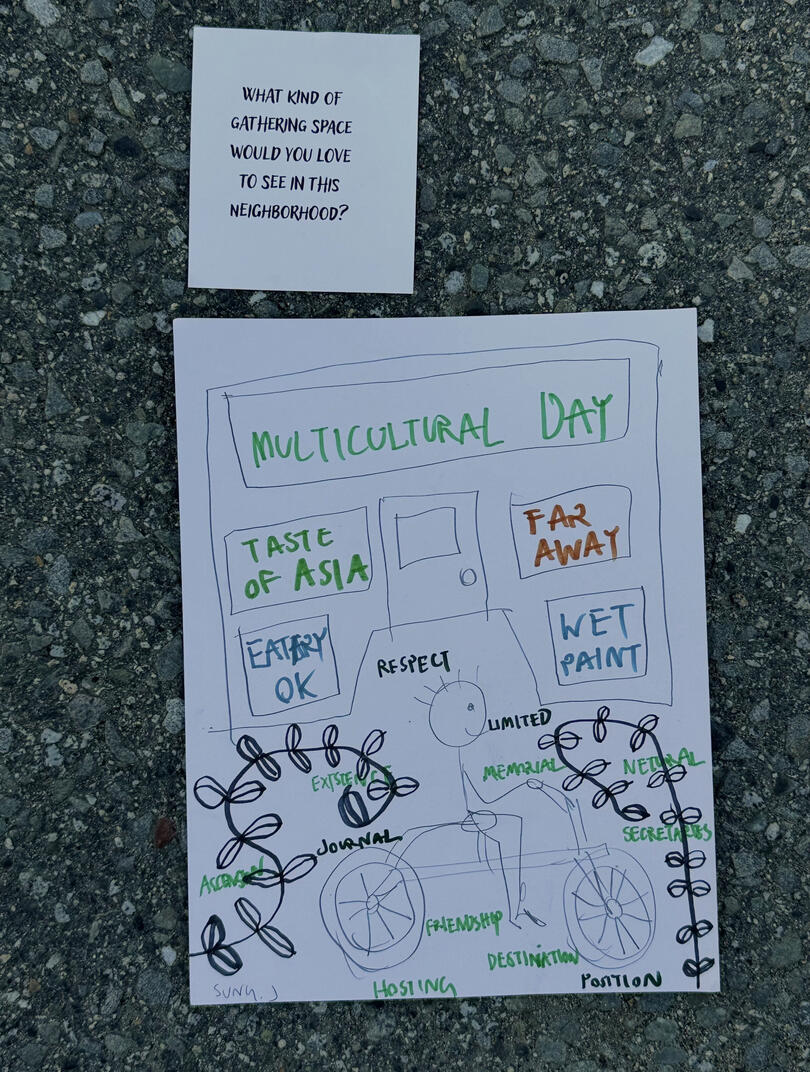 WHAT KIND OF
GATHERING SPACE
WOULD YOU LOVE
TO SEE IN THIS
NEIGHBORHOOD?
MULTICULTURAL DAY
TASTE
OF ASIA
FAR
AWAY
EATERY
OK
WET
PAINT
RESPECT
LIMITED
EXISTENCE
MEMORIAL
NETURAL
JOURNAL
SECRETARIES
ASCENSION
FRIENDSHIP
DESTINATION
HOSTING
POSITION
SUNG. J